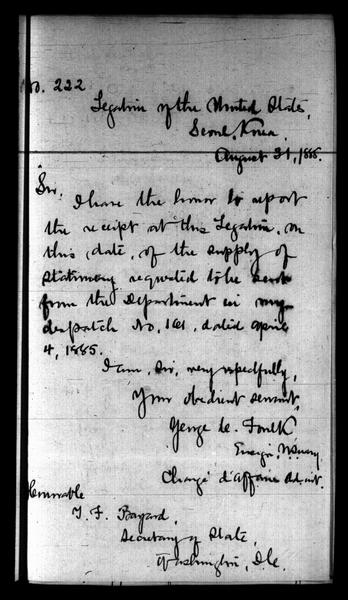 No. 222
Legation of the United States,
Seoul, Korea,
August 31, 1885.
Sir,
I have the honor to report
the receipt at this Legation, on
this date, of the supply of
stationery requested to be sent
from the Department in my
despatch No. 161, dated April
4, 1885.
I am, Sir, very respectfully,
Your obedient servant,
George C. Foulk
Ensign, U.S. Navy
Chargé d'Affaires ad. int.
Honorable
T. F. Bayard,
Secretary of State,
Washington, D.C.